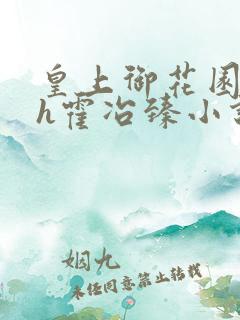 皇上御花园
h霍冶臻小
姻九
未经同意禁止转载